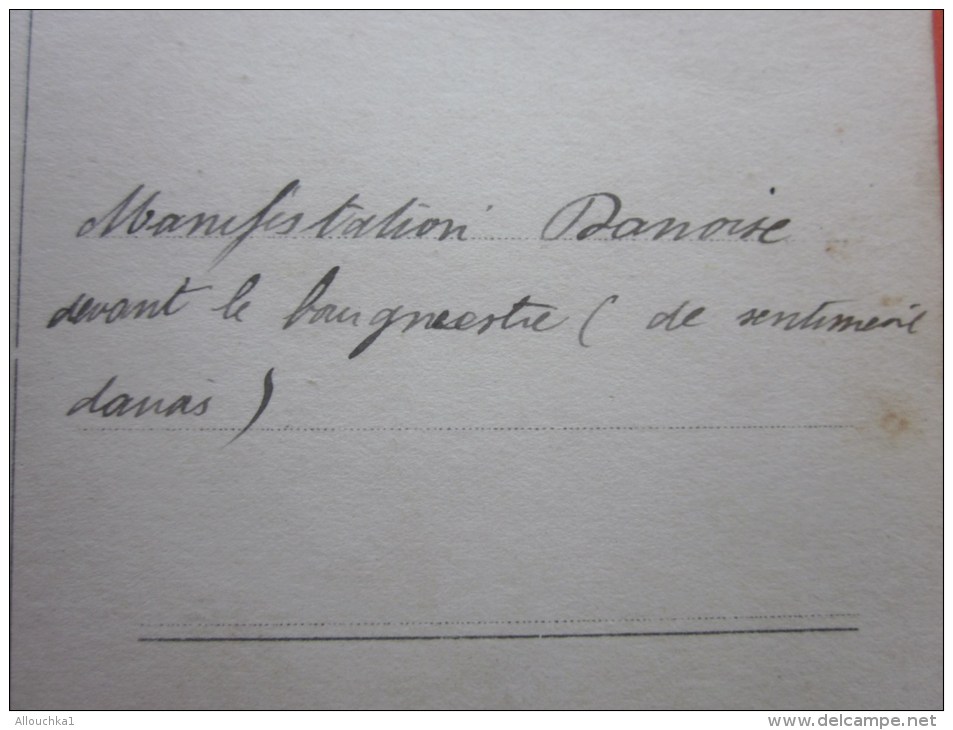 Manifestation Danoise
devant le bourgmestre (de sentiment
danois)
Allouchka1
www.delcampe.net